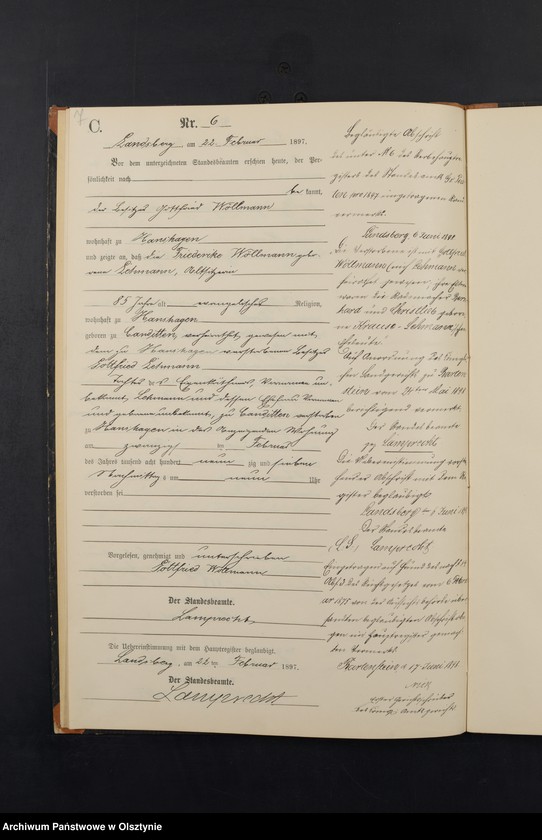 7
C.
Nr. 6
Landsberg am 22 Februar 1897.
Vor dem unterzeichneten Standesbeamten erschien heute, der Per-
sönlichkeit nach
be kannt,
der Besitzer Gottfried Wöllmann
wohnhaft zu Hanshagen
und zeigte an, daß die Friederike Wöllmann gebo-
rene Lehmann, Altsitzerin
85 Jahr alt evangelischer Religion,
wohnhaft zu Hanshagen
geboren zu Canditten, verheirathet gewesen mit
dem zu Hanshagen verstorbenen Besitzer
Gottfried Lehmann
Tochter des Eigenkäthners, Vornamen un-
bekannt, Lehmann und dessen Ehefrau Vornamen
und geborene unbekannt, zu Canditten verstorben
zu Hanshagen in des Anzeigenden Wohnung
am zwanzig ten Februar
des Jahres tausend acht hundert neun zig und sieben
Nachmittags um neun Uhr
verstorben sei
Vorgelesen, genehmigt und unterschrieben
Gottfried Wöllmann
Der Standesbeamte.
Lamprecht
Die Uebereinstimmung mit dem Hauptregister beglaubigt.
Landsberg, am 22 ten Februar 1897.
Der Standesbeamte.
Lamprecht
Beglaubigte Abschrift
des unter No 6 des Sterbehaupt
registers des Standesamts
pro 1897 eingetragenen Rand
vermerks.
Landsberg, 6 Juni 1898
Die Verstorbene ist mit Gottfried
Wöllmann Lehmann ver-
heirathet gewesen, ihre Eltern
waren die
und Dorothea gebore-
ne Krause - Lehmann
Eheleute.
Auf Anordnung des Königli-
chen Landgerichts zu Barten-
stein vom Mai 1898
berichtigend vermerkt.
Der Standesbeamte
gez Lamprecht
Die Uebereinstimmung vorste-
hender Abschrift mit dem Re-
gister beglaubigt
Landsberg den 6 Juni
Der Standesbeamte
(L.S.) Lamprecht
Eingetragen auf Grund des
des Reichsgesetzes vom 6 Febru-
ar 1875 von der Aufsichtsbehörde
beglaubigten Abschrift
im Hauptregister gemach-
ten Vermerks.
Bartenstein d 17 Juni 1898
Gerichtsschreiber
des Königl. Amtsgerichts
Archiwum Państwowe w Olsztynie